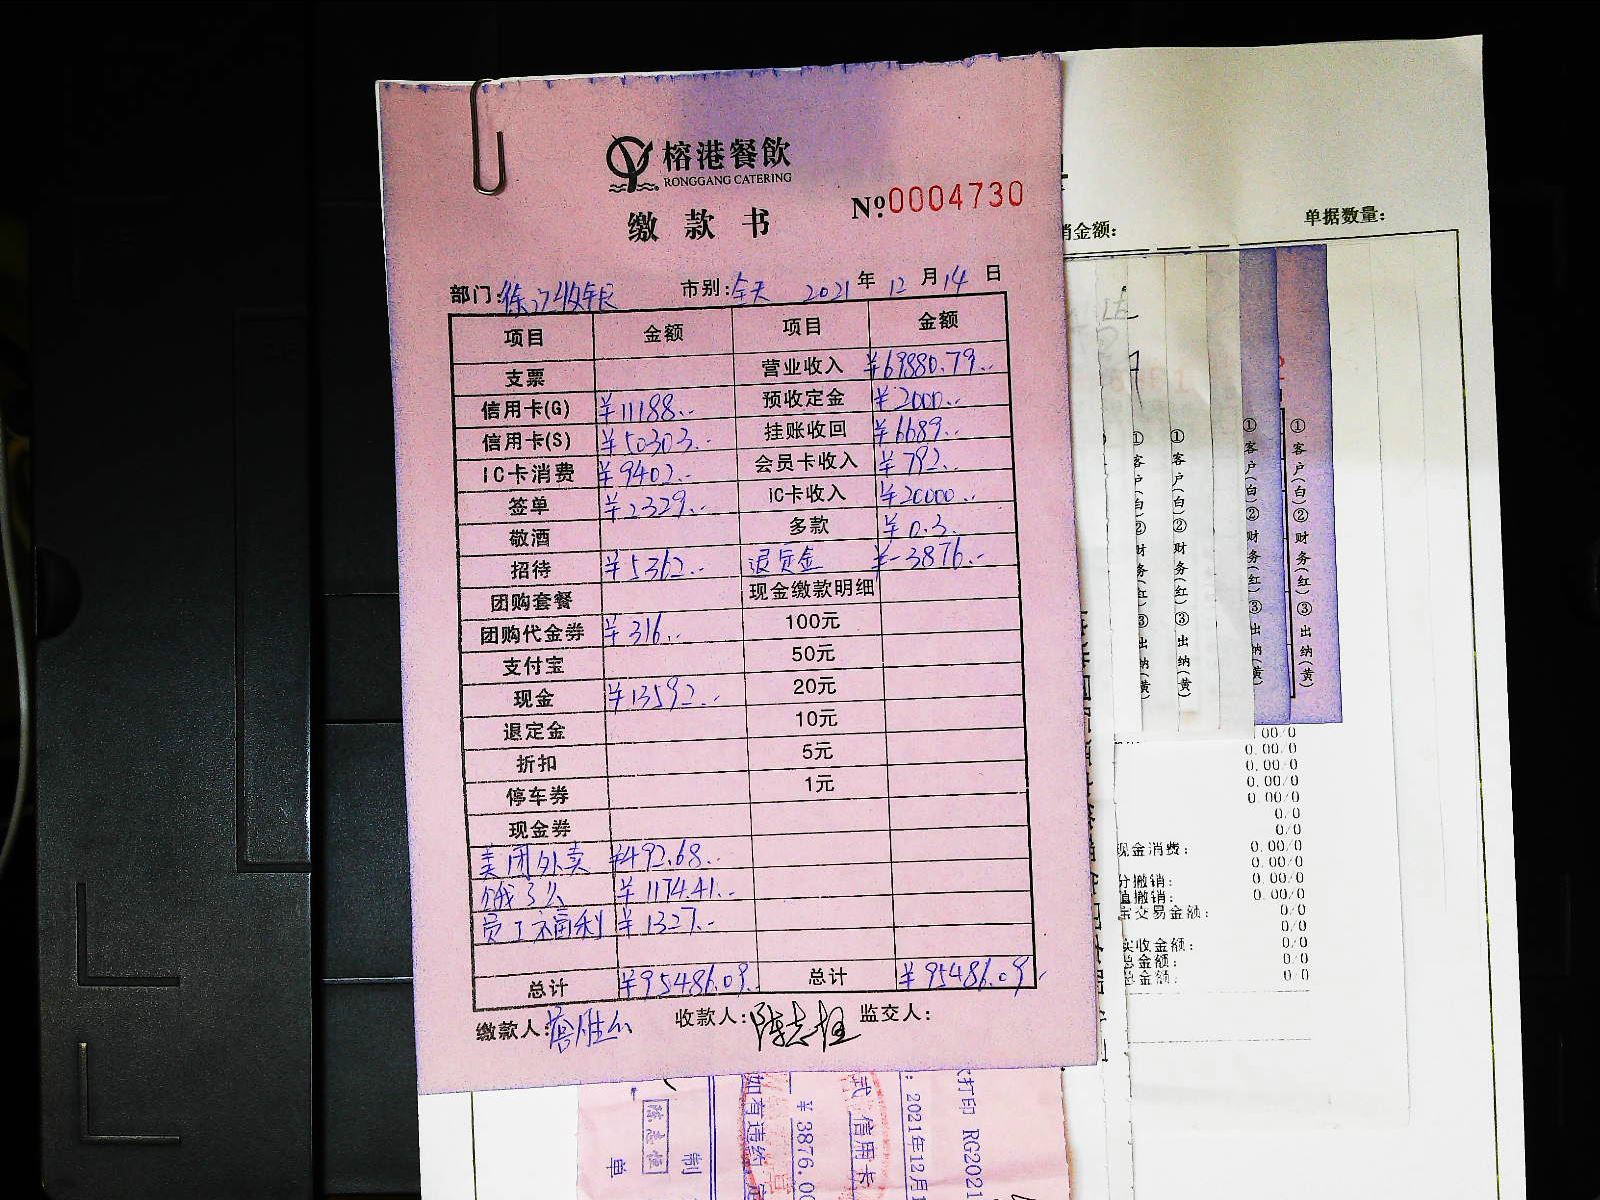 榕港餐飲
RONGGANG CATERING
缴款书
№0004730
部门: 市别:全天 2021年12月14日
项目 金额 项目 金额
支票 营业收入 ¥69880.79
信用卡(G) ¥11188 预收定金 ¥2000
信用卡(S) ¥50303 挂账收回 ¥6689
IC卡消费 ¥9402 会员卡收入 ¥792
签单 ¥2329 iC卡收入 ¥20000
敬酒 多款 ¥0.3
招待 ¥5362 退定金 ¥-3876
团购套餐 现金缴款明细
团购代金券 ¥316 100元
支付宝 50元
现金 ¥13592 20元
退定金 10元
折扣 5元
停车券 1元
现金券
美团外卖 ¥492.68
饿了么 ¥1174.41
员工福利 ¥1327
总计 ¥95486.09 总计 ¥95486.09
缴款人: 收款人: 监交人:
销金额:
单据数量:
①客户(白)②财务(红)③出纳(黄)
①客户(白)②财务(红)③出纳(黄)
①客户(白)②财务(红)③出纳(黄)
①客户(白)②财务(红)③出纳(黄)
0.00/0
0.00/0
0.00/0
0.00/0
0.00/0
0.0
0/0
现金消费: 0.00/0
0.00/0
分撤销: 0.00/0
值撤销: 0.00/0
宝交易金额: 0/0
0/0
实收金额: 0/0
总金额: 0/0
总金额: 0/0
打印 RG2021
: 2021年12月1
信用卡
¥3876.00
如有违约
制
单